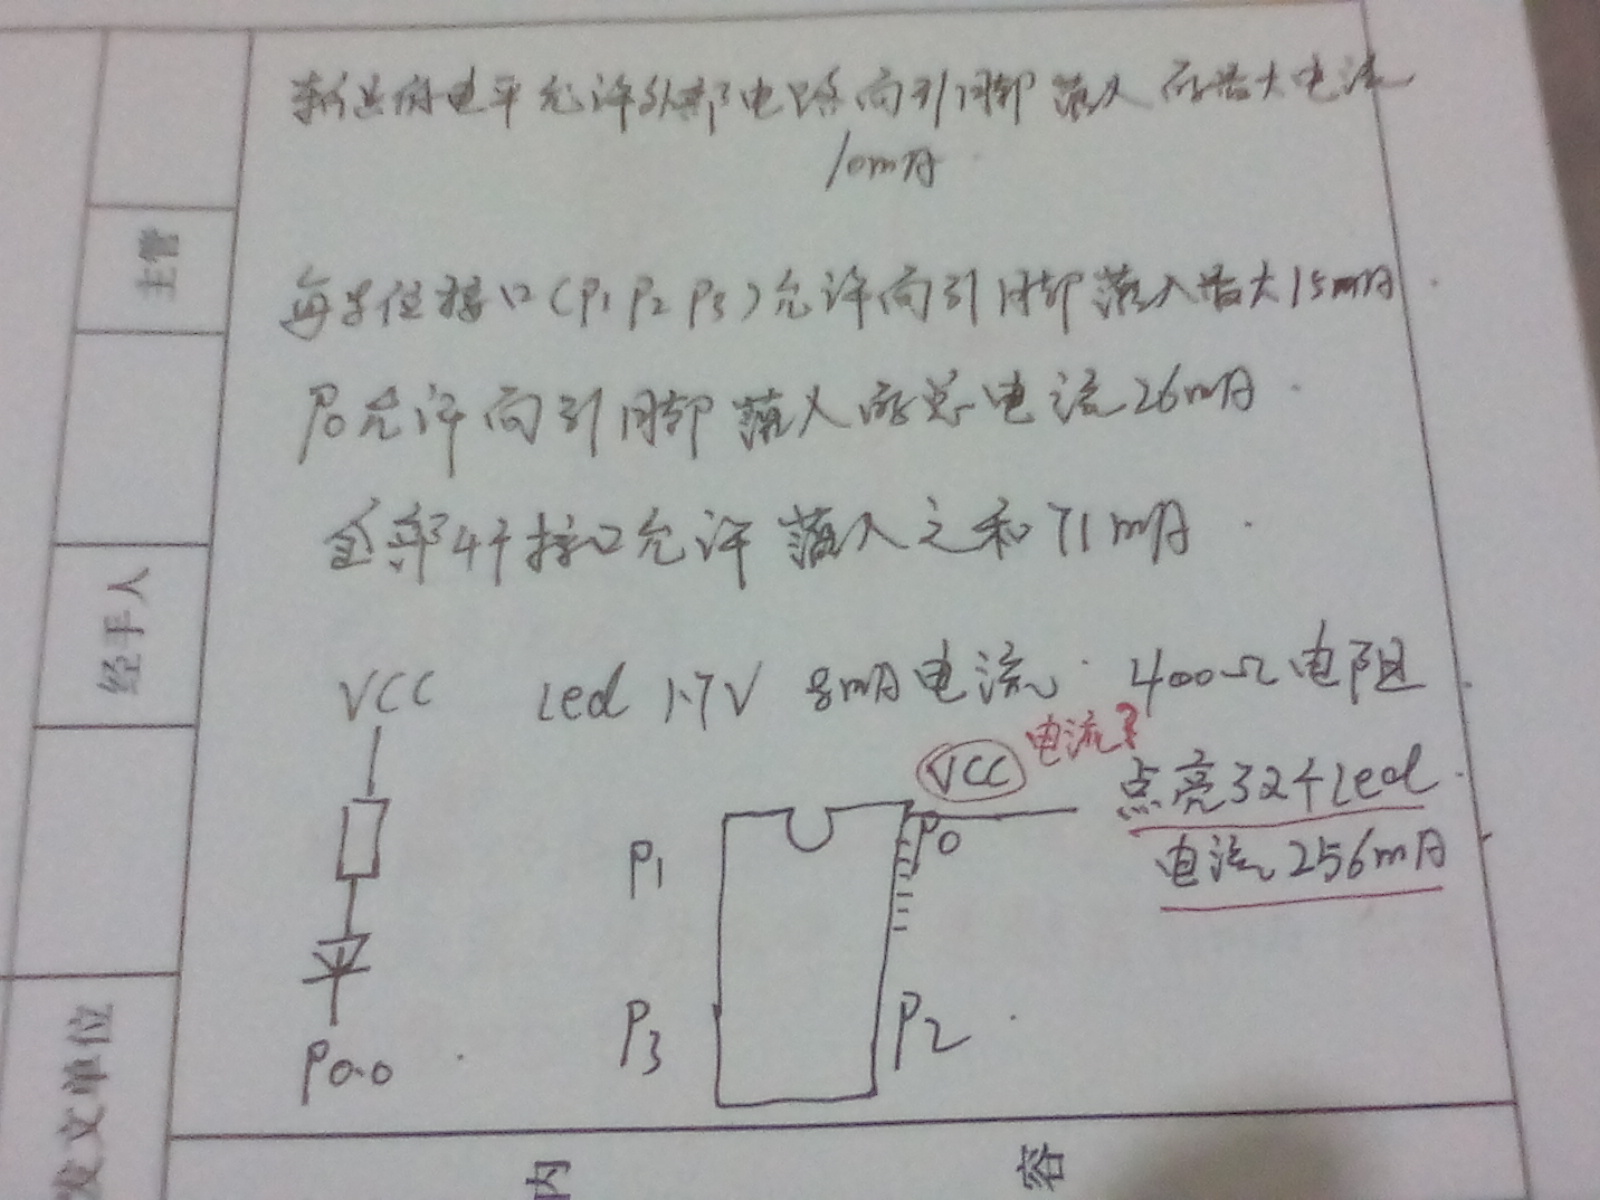 输出低电平允许外部电路向引脚灌入的最大电流
10mA
每个8位接口(P1 P2 P3)允许向引脚灌入最大15mA
P0允许向引脚灌入的总电流26mA
全部4个接口允许灌入之和71mA
VCC
Led 1.7V 8mA电流 400Ω电阻
VCC 电流?
点亮32个Led
电流256mA
P0
P1
P3
P2
P0.0
主管
经手人
发文单位
内
容